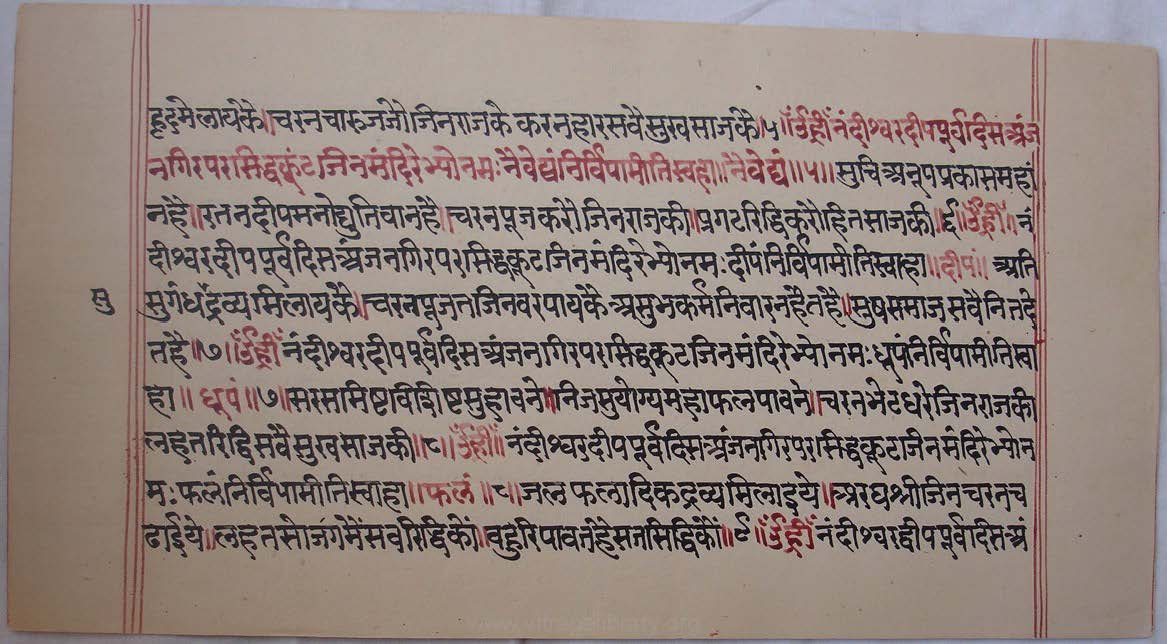 हृदमेलायकै॥चरनचारुजजौजिनराजके करनहारसवैसुखसाजकै॥५॥ॐह्रीं नंदीश्वरदीपपूर्वदिसअंज
नगिरपरसिद्धकूंटजिनमंदिरेभ्योनमःनैवेद्यंनिर्विपामीतिस्वहा॥नैवेद्यं॥५॥सुचिअनूपप्रकासमहां
नहै॥रतनदीपमनोद्युतिवानहै॥चरनपूजकरौजिनराजकी॥प्रगटरिद्धिकरोहितसाजकी॥६॥ॐह्रीं॥नं
दीश्वरदीपपूर्वदिसअंजनगिरपरसिद्धकूटजिनमंदिरेभ्योनमःदीपंनिर्विपामीतिस्वाहा॥दीपं॥अति
सुगंधद्रव्यमिलायकै॥चरनपूजतजिनवरपायकै असुभकर्मनिवारनहैतहै॥सुषसमाजसवैनितदे
सु
तहै॥७॥ॐह्रीं नंदीश्वरदीपपूर्वदिसअंजनगिरपरसिद्धकूटजिनमंदिरेभ्योनमःधूपंनिर्विपामीतिस्वा
हा॥धूपं॥७॥सरसमिष्टविशिष्टसुहावने॥निजसुयोग्यमहाफलपावने॥चरनभेटधरेजिनराजकी
लहतरिद्धिसवैसुखसाजकी॥८॥ॐह्रीं॥नंदीश्वरदीपपूर्वदिसअंजनगिरपरसिद्धकूटजिनमंदिरेभ्योन
मःफलंनिर्विपामीतिस्वाहा॥फलं॥८॥जलफलादिकद्रव्यमिलाइये॥अरघश्रीजिनचरनच
ढाईये॥लहतसोजगमैंसवरिद्धिकों॥वहुरिपावतहैसतसिद्धिकौं॥९॥ॐह्रीं नंदीश्वरद्वीपपूर्वदिसअं